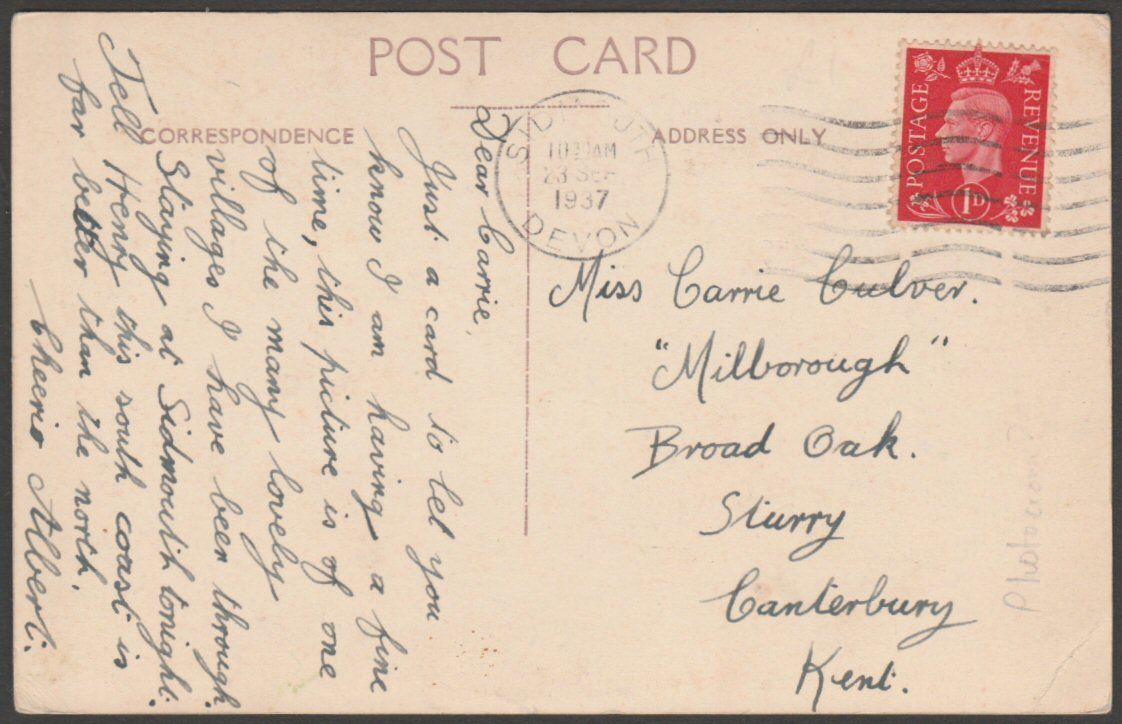 POST CARD
CORRESPONDENCE
ADDRESS ONLY
SIDMOUTH
10 AM
23 SEP
1937
DEVON
POSTAGE
REVENUE
1D
Dear Carrie,
Just a card to let you
know I am having a fine
time, this picture is of one
of the many lovely
villages I have been through.
Staying at Sidmouth tonight.
Tell Henry this south coast is
far better than the north.
Cheerio Albert.
Miss Carrie Culver.
"Milborough"
Broad Oak.
Sturry
Canterbury
Kent.
Photocrom?